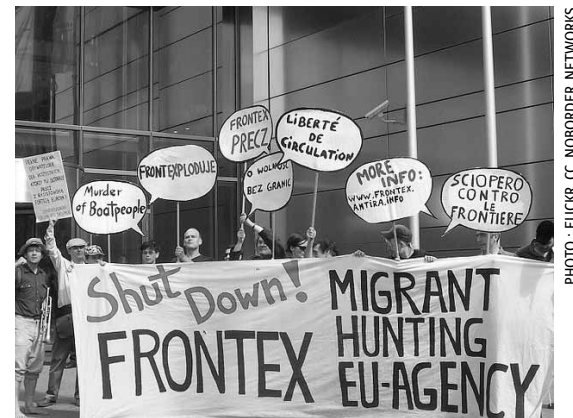 Murder
of Boatpeople
FRONTEXPLODUJE
FRONTEX
PRECZ
O WOLNOŚĆ
BEZ GRANIC
LIBERTÉ
DE
CIRCULATION
MORE
INFO:
WWW.FRONTEX.
ANTIRA.INFO
SCIOPERO
CONTRO
LE
FRONTIERE
Shut Down!
FRONTEX
MIGRANT
HUNTING
EU-AGENCY
PHOTO - FLICKR CC NOBORDER NETWORKS